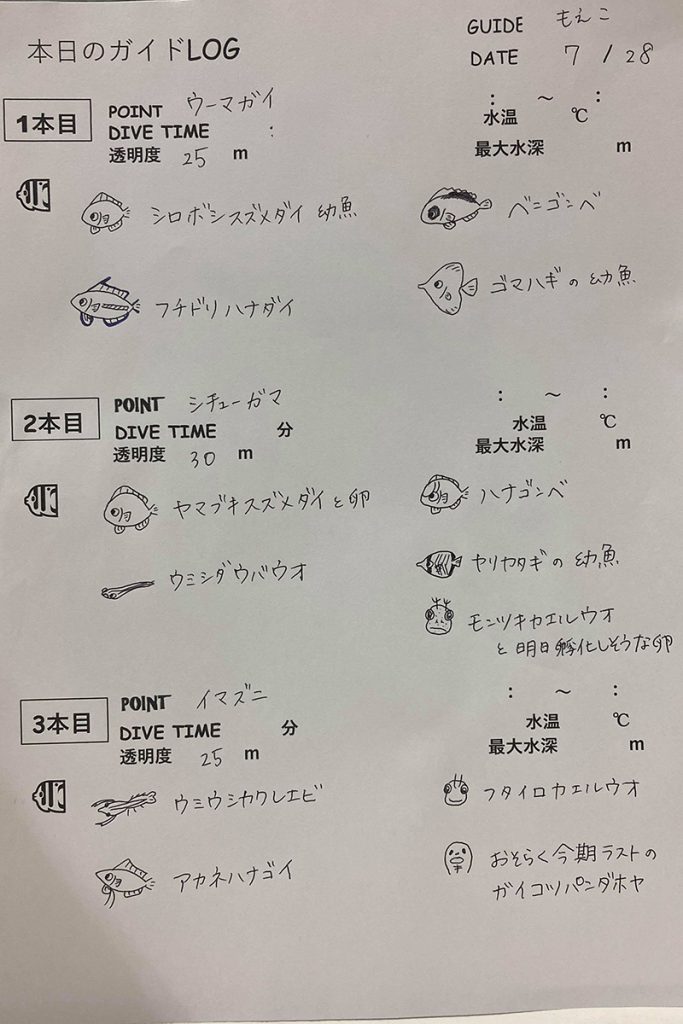 本日のガイドLOG
GUIDE もえこ
DATE 7 / 28
1本目
POINT ウーマガイ
DIVE TIME :
透明度 25 m
: ~ :
水温 ℃
最大水深 m
シロボシスズメダイ 幼魚
ベニゴンベ
フチドリハナダイ
ゴマハギの幼魚
2本目
POINT シチューガマ
DIVE TIME 分
透明度 30 m
: ~ :
水温 ℃
最大水深 m
ヤマブキスズメダイと卵
ハナゴンベ
ウミシダウバウオ
ヤリカタギの幼魚
モンツキカエルウオ
と明日孵化しそうな卵
3本目
POINT イマズニ
DIVE TIME 分
透明度 25 m
: ~ :
水温 ℃
最大水深 m
ウミウシカクレエビ
フタイロカエルウオ
アカネハナゴイ
おそらく今期ラストの
ガイコツパンダホヤ